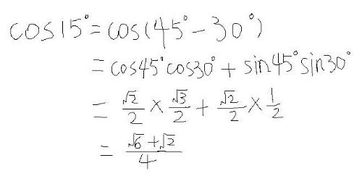 cos15°=cos(45°-30°)
=cos45°cos30°+sin45°sin30°
=√2/2×√3/2+√2/2×1/2
=(√6+√2)/4